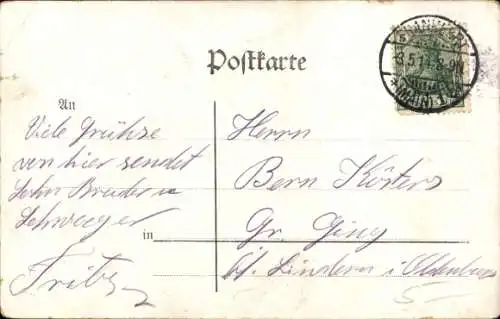 Postkarte
3.5.1
An
Viele Grühse
von hier sendet
Bruder u
Schwager
Fritz
Herrn
Bern Kösters
Gr. Ging
in
b/. Lindern i. Oldenburg
5